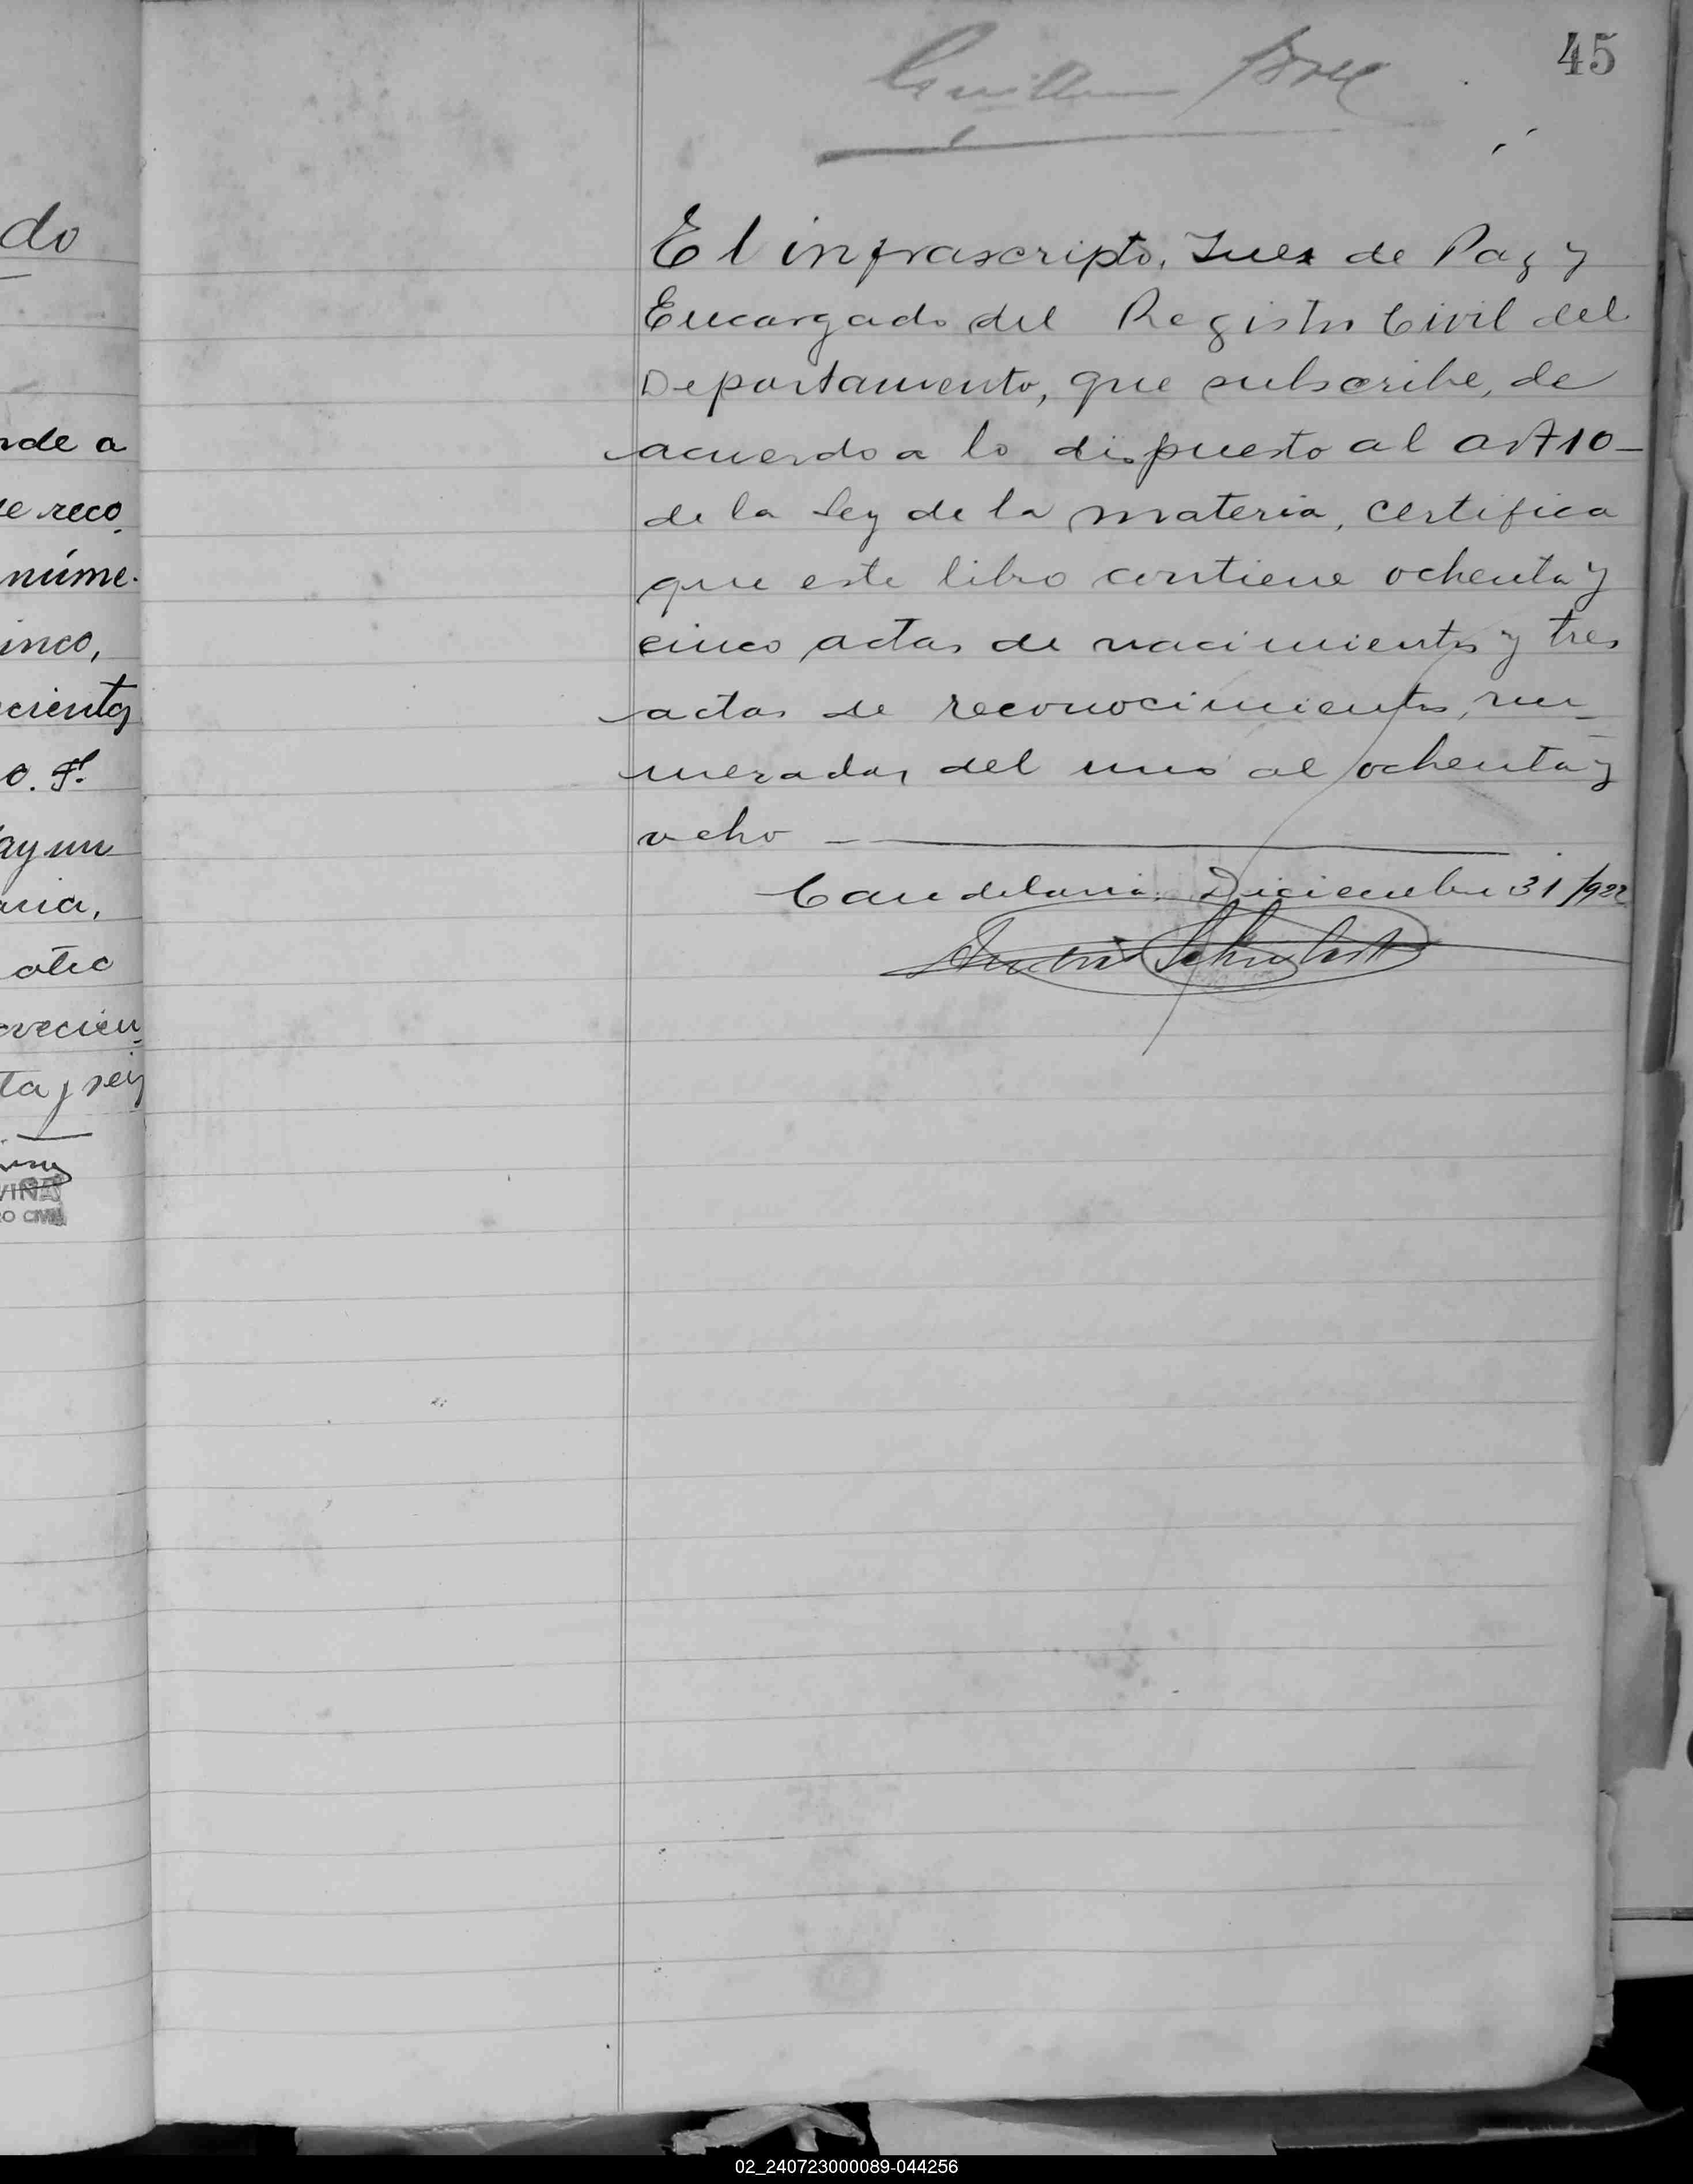 do
rde a
e reco
núme-
inco,
cientos
o. Fl.
ay un
aria,
otro
vecien
ta y seis
VIÑA
RO CIVIL
45
El infrascripto, Juez de Paz y
Encargado del Registro Civil del
Departamento, que subscribe, de
acuerdo a lo dispuesto al art 10-
de la Ley de la materia, certifica
que este libro contiene ochenta y
cinco actas de nacimientos y tres
actas de reconocimientos, nu-
meradas del uno al ochenta y
ocho
Candelaria, Diciembre 31/922
02_240723000089-044256